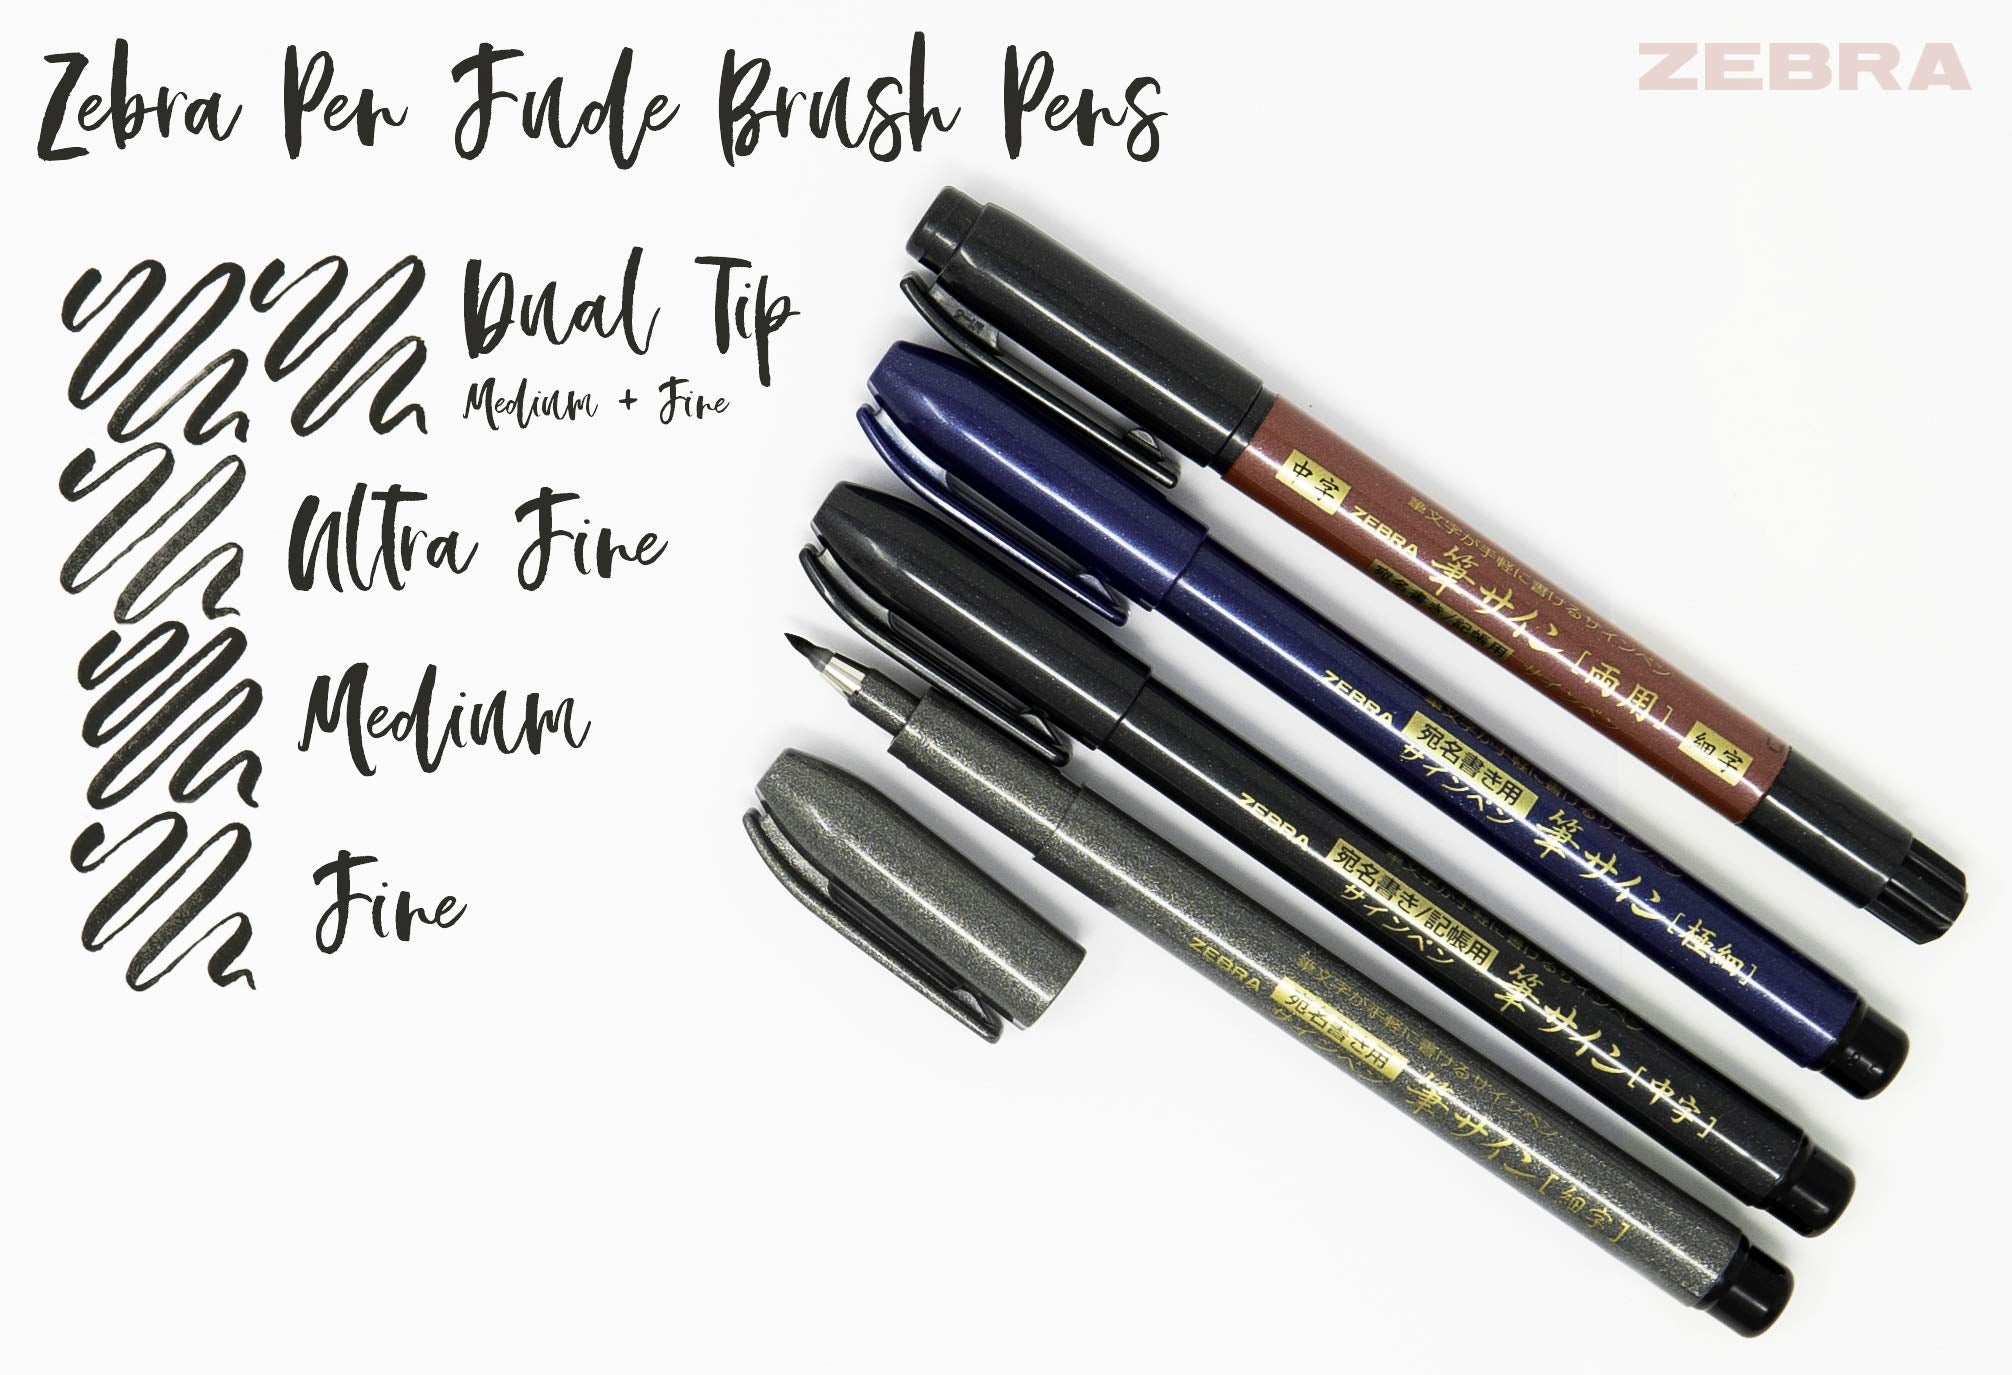 Zebra Pen Fude Brush Pens
ZEBRA
Dual Tip
Medium + Fine
Ultra Fine
Medium
Fine
中字
筆文字が手軽に書けるサインペン
ZEBRA 筆サイン[両用] 細字
宛名書き/記帳用 サインペン
ZEBRA 宛名書き用 筆サイン[極細]
サインペン
ZEBRA 宛名書き/記帳用 筆サイン[中字]
サインペン
筆文字が手軽に書けるサインペン
ZEBRA 宛名書き用 筆サイン[細字]
サインペン